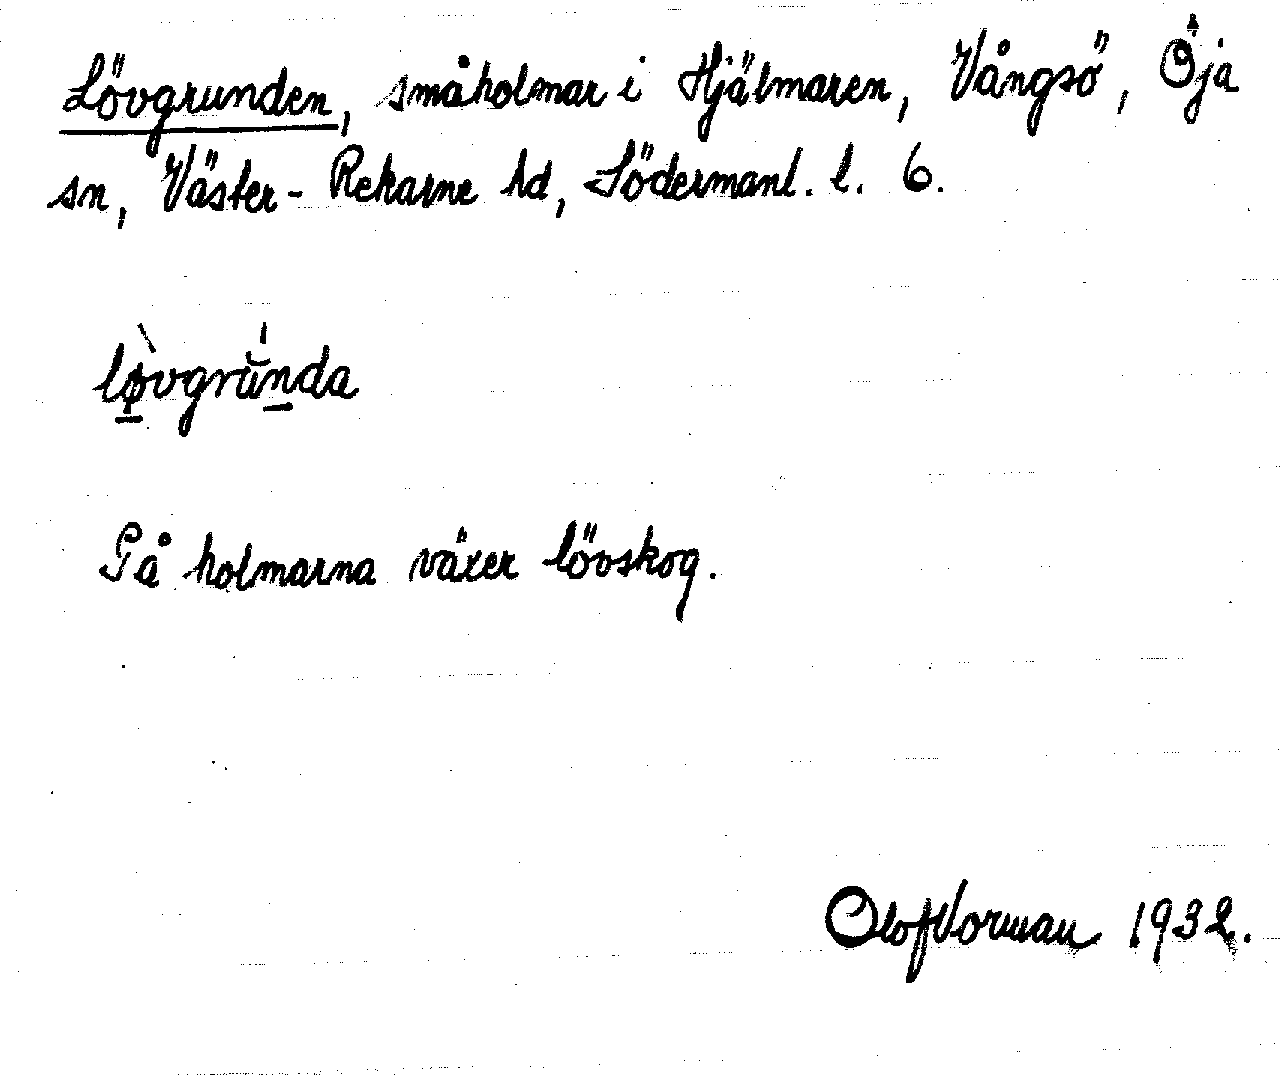 Lövgrunden, småholmar i Hjälmaren, Vångsö, Öja
sn, Väster-Rekarne hd, Södermanl. l. 6.
lø̲̀vgrŭ́n̲da
På holmarna växer lövskog.
Olof Vorman 1932.